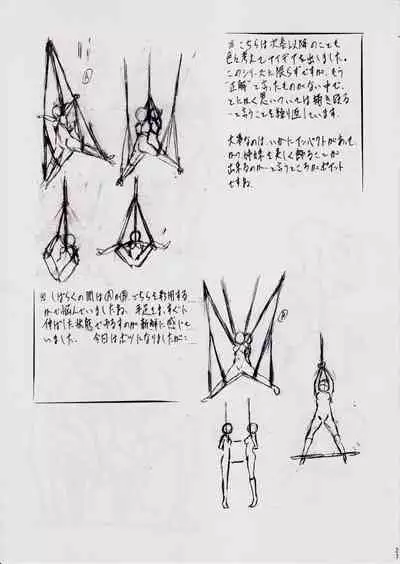 ※ こちらは次巻以降のことも
色々考えてアイデアを出しました。
このシリーズに限らずですが、もう
"正解"と言ったものがない中で、
とにかく思いついては描き殴る
と言うことを繰り返しています。
大事なのは、いかにインパクトがあって
かつ姉妹を美しく飾ることが
出来るのか…と言うところがポイント
ですね。
Ⓐ
※ しばらくの間はⒶかⒷ、どちらを採用する
かで悩んでいましたね。手足をまっすぐに
伸ばした状態で吊るすのが新鮮に感じて
いました。 今回はボツになりましたが…
Ⓑ
23